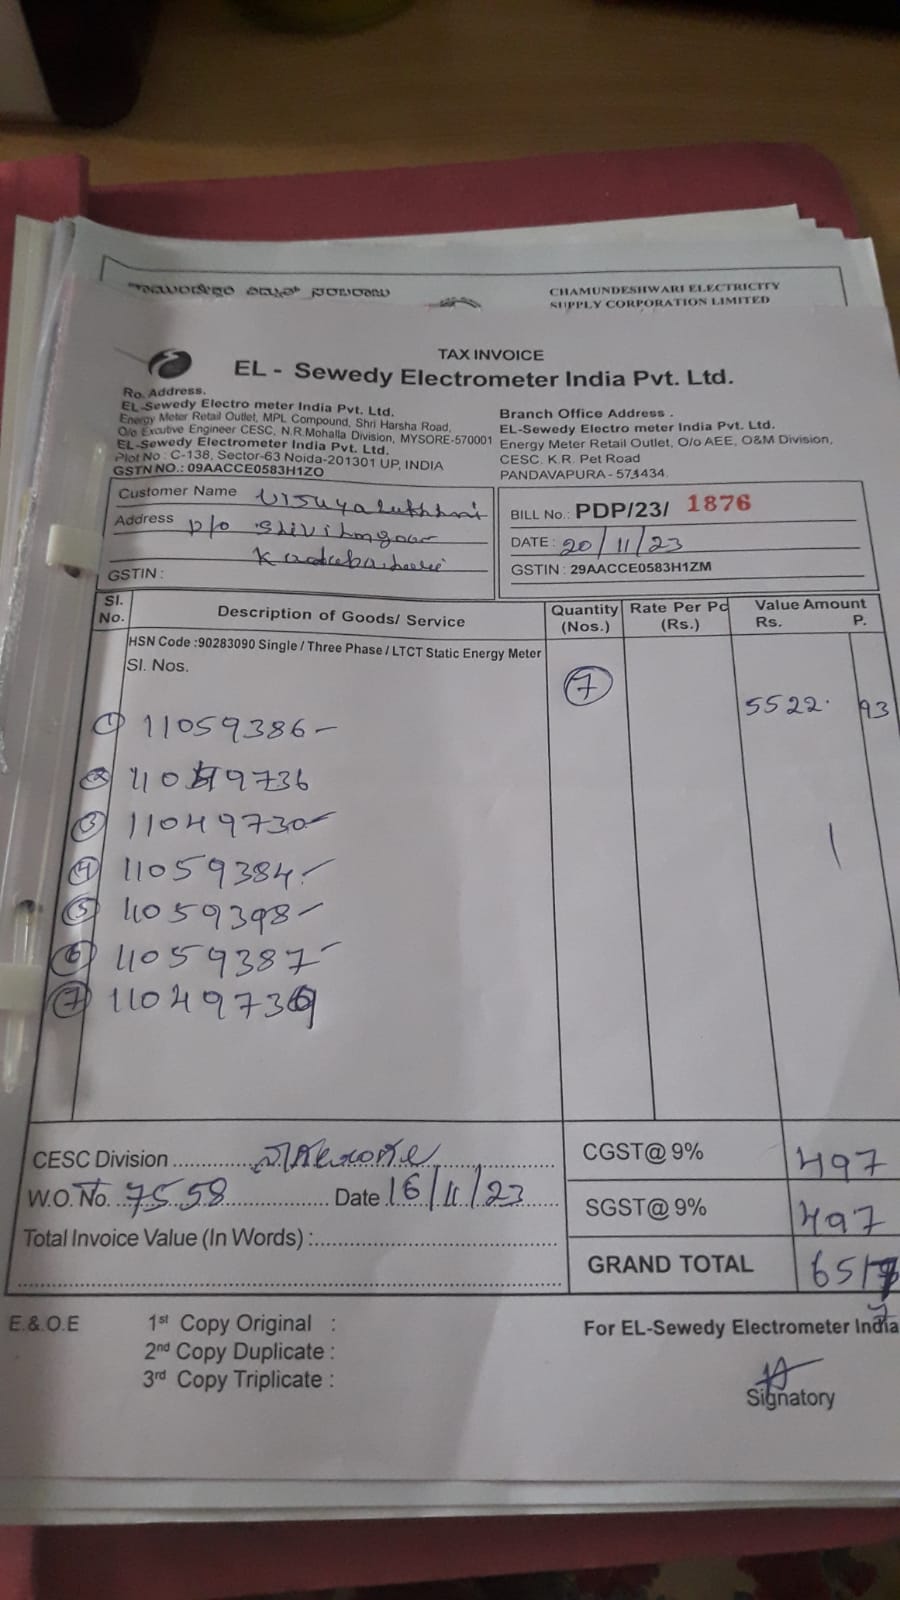 ಚಾಮುಂಡೇಶ್ವರಿ ವಿದ್ಯುತ್ ಸರಬರಾಜು
CHAMUNDESHWARI ELECTRICITY
SUPPLY CORPORATION LIMITED
TAX INVOICE
EL - Sewedy Electrometer India Pvt. Ltd.
Ro. Address.
EL-Sewedy Electro meter India Pvt. Ltd.
Energy Meter Retail Outlet, MPL Compound, Shri Harsha Road,
O/o Excutive Engineer CESC, N.R.Mohalla Division, MYSORE-570001
EL-Sewedy Electrometer India Pvt. Ltd.
Plot No : C-138, Sector-63 Noida-201301 UP, INDIA
GSTN NO.: 09AACCE0583H1ZO
Branch Office Address .
EL-Sewedy Electro meter India Pvt. Ltd.
Energy Meter Retail Outlet, O/o AEE, O&M Division,
CESC. K.R. Pet Road
PANDAVAPURA - 573434.
Customer Name
Address P/o
GSTIN :
BILL No.: PDP/23/ 1876
DATE : 20/11/23
GSTIN : 29AACCE0583H1ZM
Sl. No. Description of Goods/ Service Quantity (Nos.) Rate Per Pc (Rs.) Value Amount Rs. P.
HSN Code :90283090 Single / Three Phase / LTCT Static Energy Meter
Sl. Nos.
7 5522. 93
1 11059386-
2 11049736
3 11049730-
4 11059384-
5 11059398-
6 11059387-
7 11049739
CESC Division
W.O. No. 7558 Date 16/11/23
Total Invoice Value (In Words) :
CGST@ 9% 497
SGST@ 9% 497
GRAND TOTAL 6517
E.& O.E
1st Copy Original :
2nd Copy Duplicate :
3rd Copy Triplicate :
For EL-Sewedy Electrometer India
Signatory